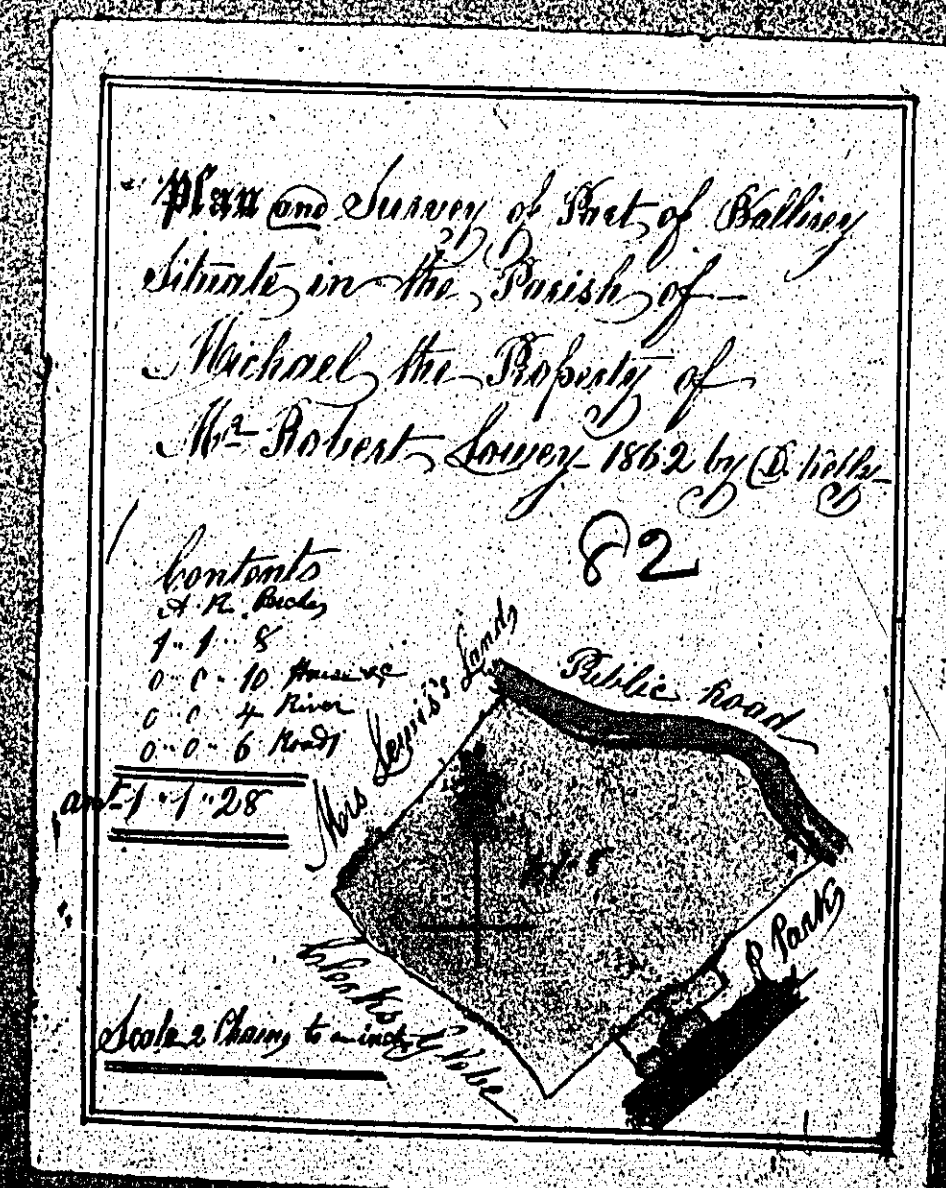 Plan and Survey of Part of Ballirey
Situate in the Parish of
Michael the Property of
Mr Robert Lowey 1862 by D. Kelly
82
Contents
A. R. Perches
1 " 1 " 8
0 " 0 " 10 House &c
0 " 0 " 4 River
0 " 0 " 6 Road
1 " 1 " 28
Mrs Lewis's Land
Public Road
R Park
Clerks Glebe
Scale 2 Chains to an inch